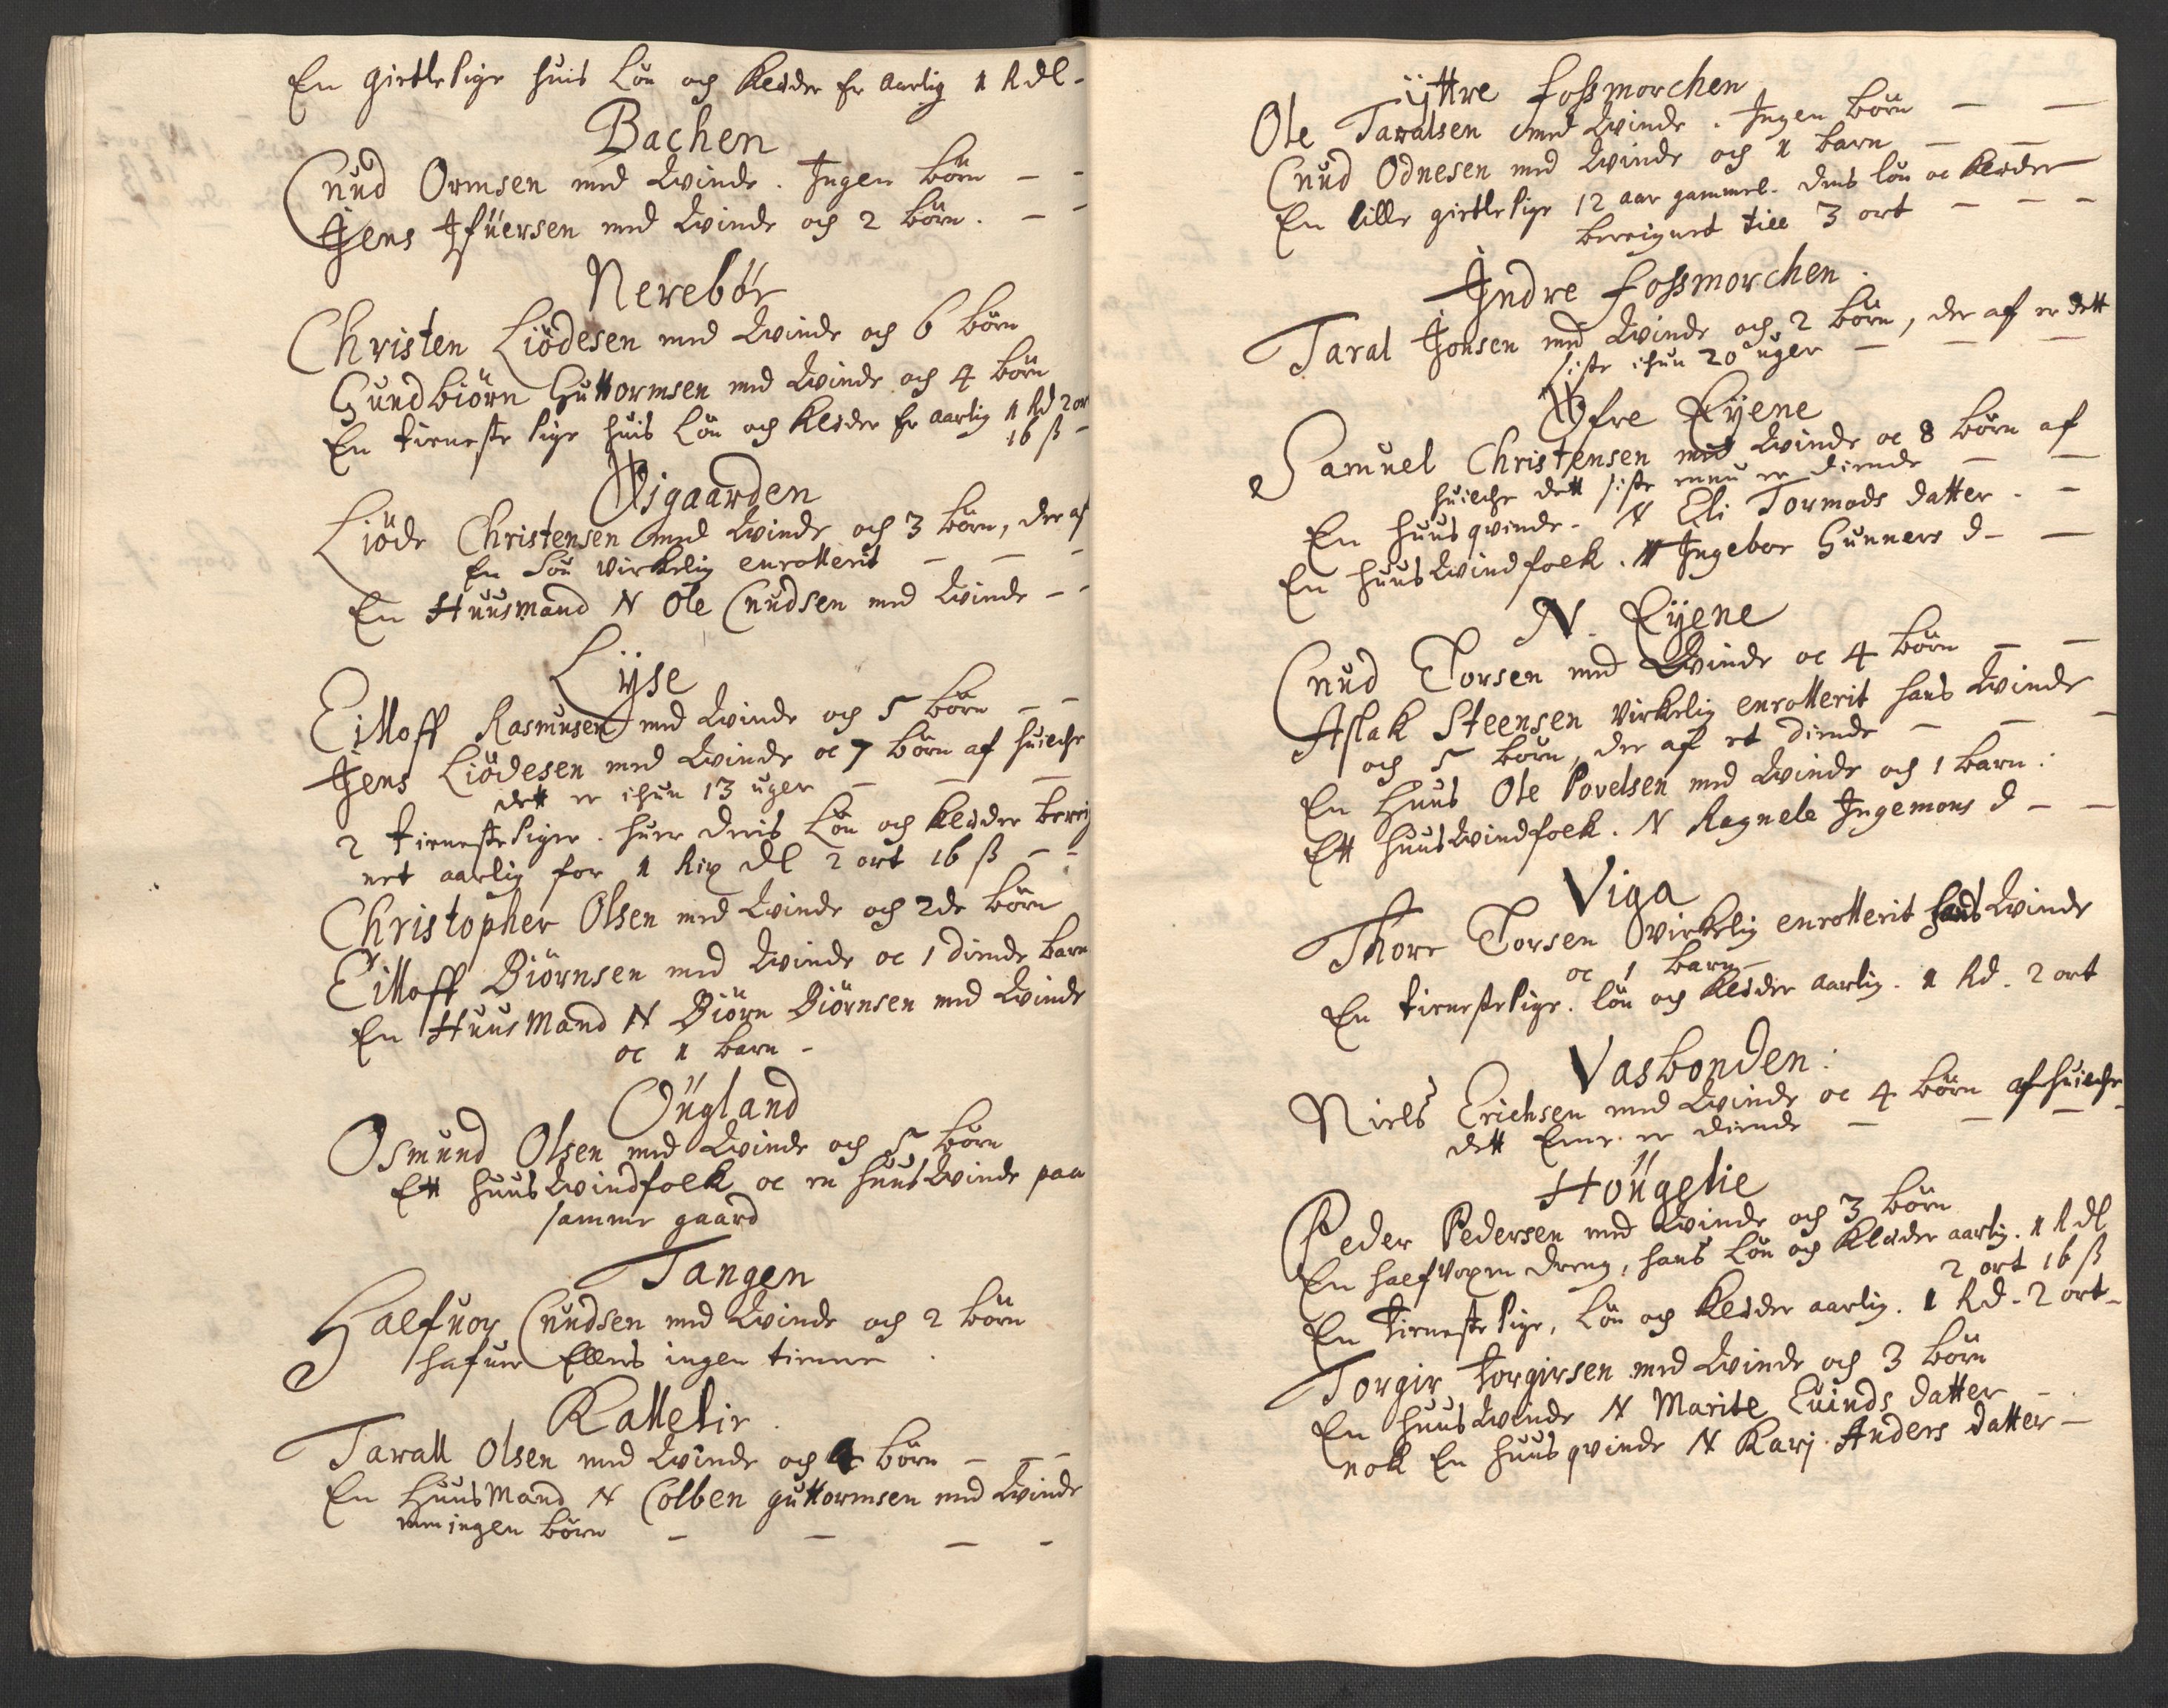 En Giettle Pige huis Løn och Klæder Er aarlig 1 Rdl -
Bachen
Cnud Ormsen med Qvinde. Ingen børn - -
Jens Ifuersen med Qvinde och 2 børn. - -
Nerebør
Christen Liødesen med Qvinde och 6 børn
Gundbiørn Guttormsen med Qvinde och 4 børn
En tieneste Pige huis Løn och Klæder Er aarlig 1 Rd 2 or
16 ß -
Øsgaarden
Liøde Christensen med Qvinde och 3 børn, der af
En Søn virkelig enrotterit - - -
En Huusmand N Ole Cnudsen med Qvinde - -
Lÿse
Eilloff Rasmusen med Qvinde och 5 børn - -
Jens Liødesen med Qvinde oc 7 børn af huilche
dett er ichun 13 uger - - -
2 tieneste Piger. huer deris Løn och Klæder bereig
net aarlig for 1 Rix Dl 2 ort 16 ß - -
Christopher Olsen med Qvinde och 2de børn
Eilloff Biørnsen med Qvinde oc 1 diende barn
En Huus Mand N Biørn Biørnsen med Qvinde
oc 1 barn -
Øugland
Osmund Olsen med Qvinde och 5 børn
Ett huus Qvindfolk oc en huus Qvinde paa
samme gaard
Tangen
Halfuor Cnudsen med Qvinde och 2 børn
hafuer Ellers ingen tienere.
Kallelie
Tarall Olsen med Qvinde och 4 børn - - -
En Huus Mand N Colben guttormsen med Qvinde
men ingen børn - - - -
ÿttre fossmorchen
Ole Taralsen med Qvinde. Ingen børn - -
Cnud Odnesen med Qvinde och 1 barn - -
En lille giettle Pige 12 aar gammel. Dens løn oc Klæder
bereignet till 3 ort - - -
Indre fossmorchen.
Taral Jonsen med Qvinde och 2 børn, der af er dett
siste ichun 20 uger - - -
Øfre Eÿene
Samuel Christensen med Qvinde oc 8 børn af
huilche dett siste ennu er diende - -
En huusqvinde - N Eli Tormods datter. -
En huus Qvindfolk. N Ingebor Gunners d - -
N. Eÿene
Cnud Torsen med Qvinde oc 4 børn - -
Aslak Steensen virkelig enrotterit hans Qvinde
och 5 børn, der af et diende - - -
En Huus Ole Povelsen med Qvinde och 1 barn:
Ett huus Qvindfolk. N Ragnele Ingemons d - -
Viga
Thore Torsen virkelig enrotterit hans Qvinde
oc 1 barn -
En tieneste Pige. løn och Klæder aarlig. 1 Rd. 2 ort
Vasbonden:
Niels Erichsen med Qvinde oc 4 børn af huilche
dett Ene er diende - - -
Høugelie
Peder Pedersen med Qvinde och 3 børn
En half voxen dreng, hans løn och Klæder aarlig. 1 Rdl
2 ort 16 ß
En tieneste Pige, Løn och Klæder aarlig. 1 Rd. 2 ort -
Torgir torgirsen med Qvinde och 3 børn
En huus Qvinde N Marite Euinds datter - .
nok En huusqvinde N Karj Anders datter -